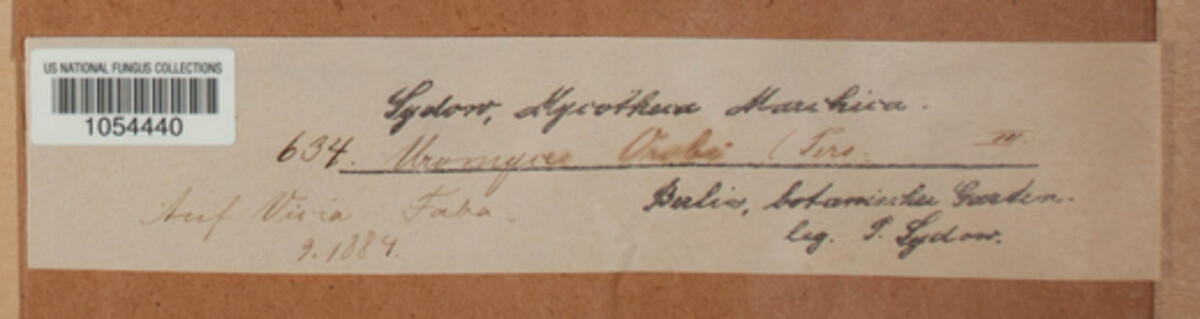 US NATIONAL FUNGUS COLLECTIONS
1054440
Sydow, Mycotheca Marchica.
634. Uromyces Orobi (Pers. III.
Auf Vicia Faba.
9. 1884.
Berlin, botanischer Garten.
leg. P. Sydow.